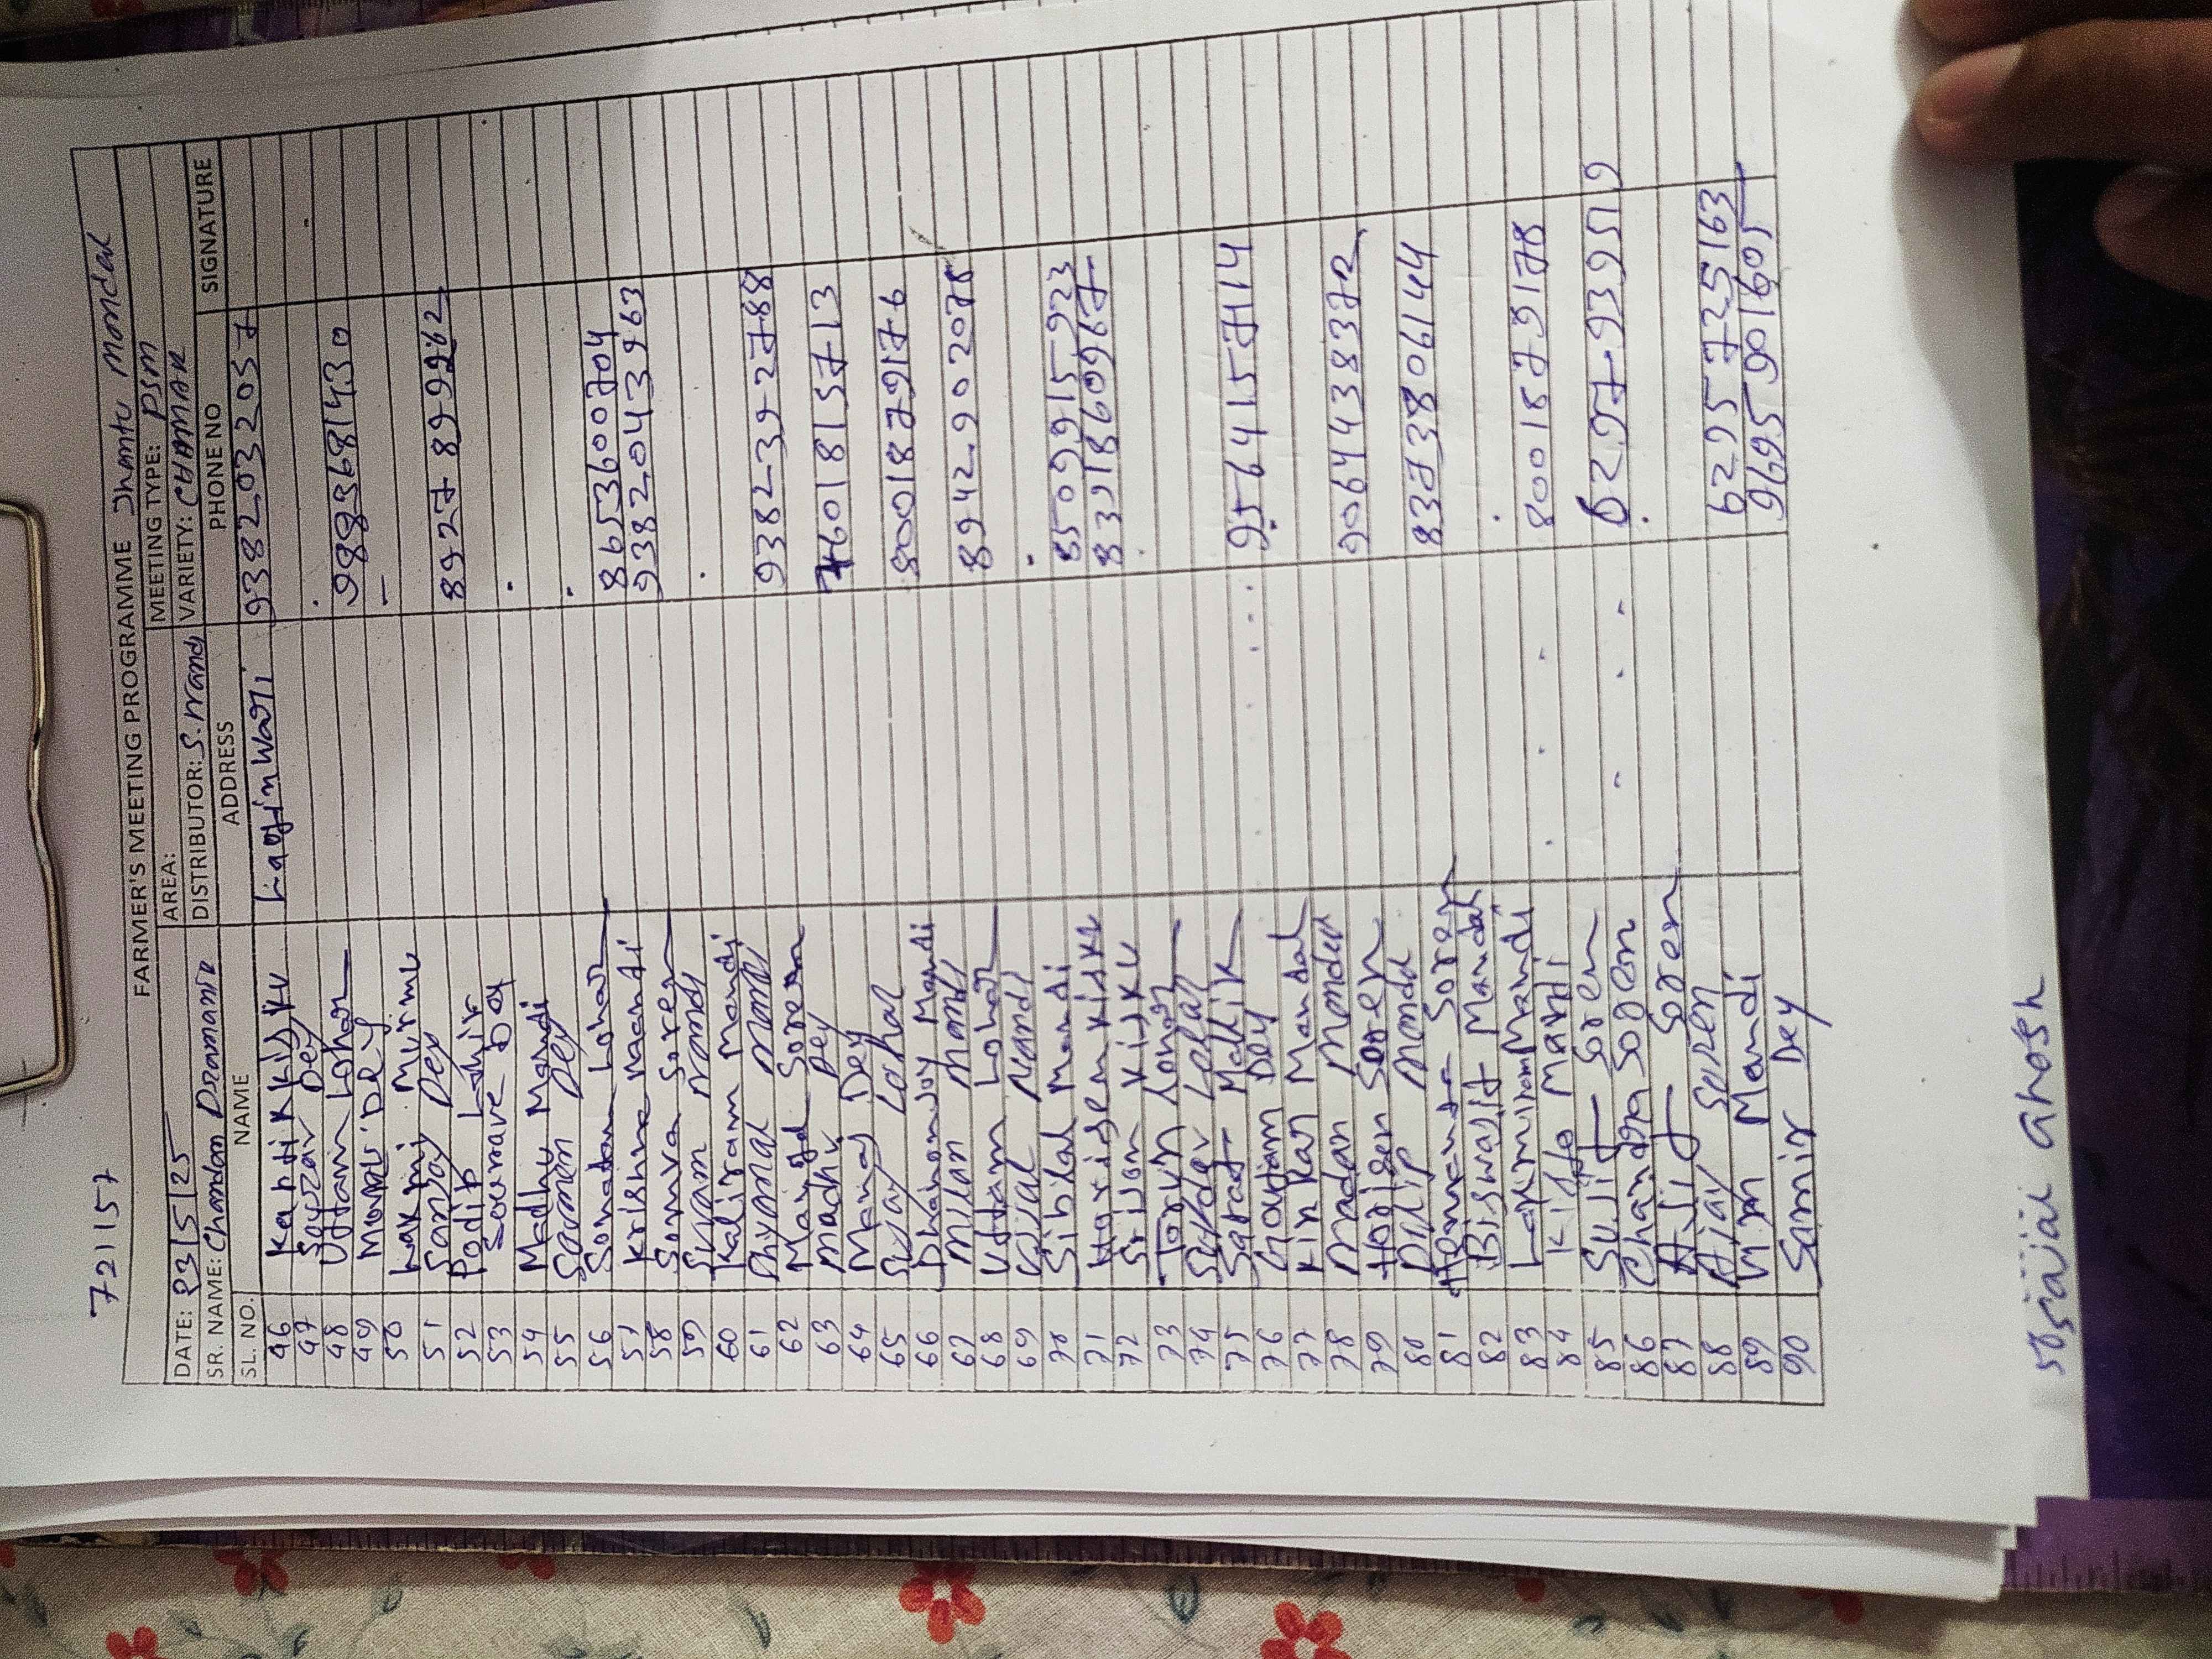 721157
FARMER'S MEETING PROGRAMME Jhantu Mondal
DATE: 23/5/25 AREA: MEETING TYPE: PSM
SR. NAME: Chandan Deamania DISTRIBUTOR: S. Nandi VARIETY: CHAMAK
SL. NO. NAME ADDRESS PHONE NO SIGNATURE
46 Karttik Kisku 9382032057
47 Sourav Dey
48 Uttam Lohar 9883681430
49 Monali Dey –
50 Laxmi Murmu
51 Sanjoy Dey 8927 899962
52 Lahir
53 Sourave Dey
54 Madhu Mandi
55 Saman Dey
56 Sonatan Lohar 8653600704
57 Krishna Mandi 9382043963
58 Somva Soren
59 Suvam Nandi
60 Kaliram Mandi
61 Nandi 9382392788
62 Soren
63 Madhu Dey 7601815713
64 Manoj Dey
65 Sujay Lahar 8001879176
66 Dhanonjoy Mandi
67 Milan Nandi 8942902078
68 Uttam Lohar
69 Nandi
70 Sibilal Mandi 8509915923
71 Kisku 8391860967
72 Srijon Kisku
73 Torun Lohar
74 Lohar
75 Sarat Mallik 9564157114
76 Goutam Dey
77 Kinkar Mandal
78 Madan Mondal 9064438372
79 Horisen Soren
80 Dilip Nandi 8373806144
81 Hemanta Soren
82 Biswajit Mandal
83 Lakhmirom Mandi 8001879178
84 Mandi
85 Sujit Soren 6297939519
86 Chandra Soren
87 Ajit Soren
88 Ajay Soren 6295725163
89 Mandi 9695901605
90 Samir Dey
Ghosh